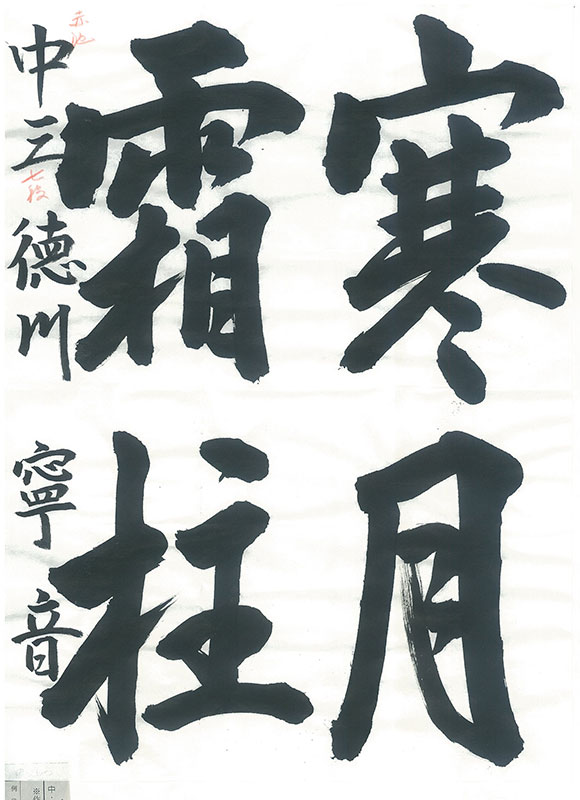 寒月
霜柱
中三徳川寧音
赤池
七段
中・
※作
例